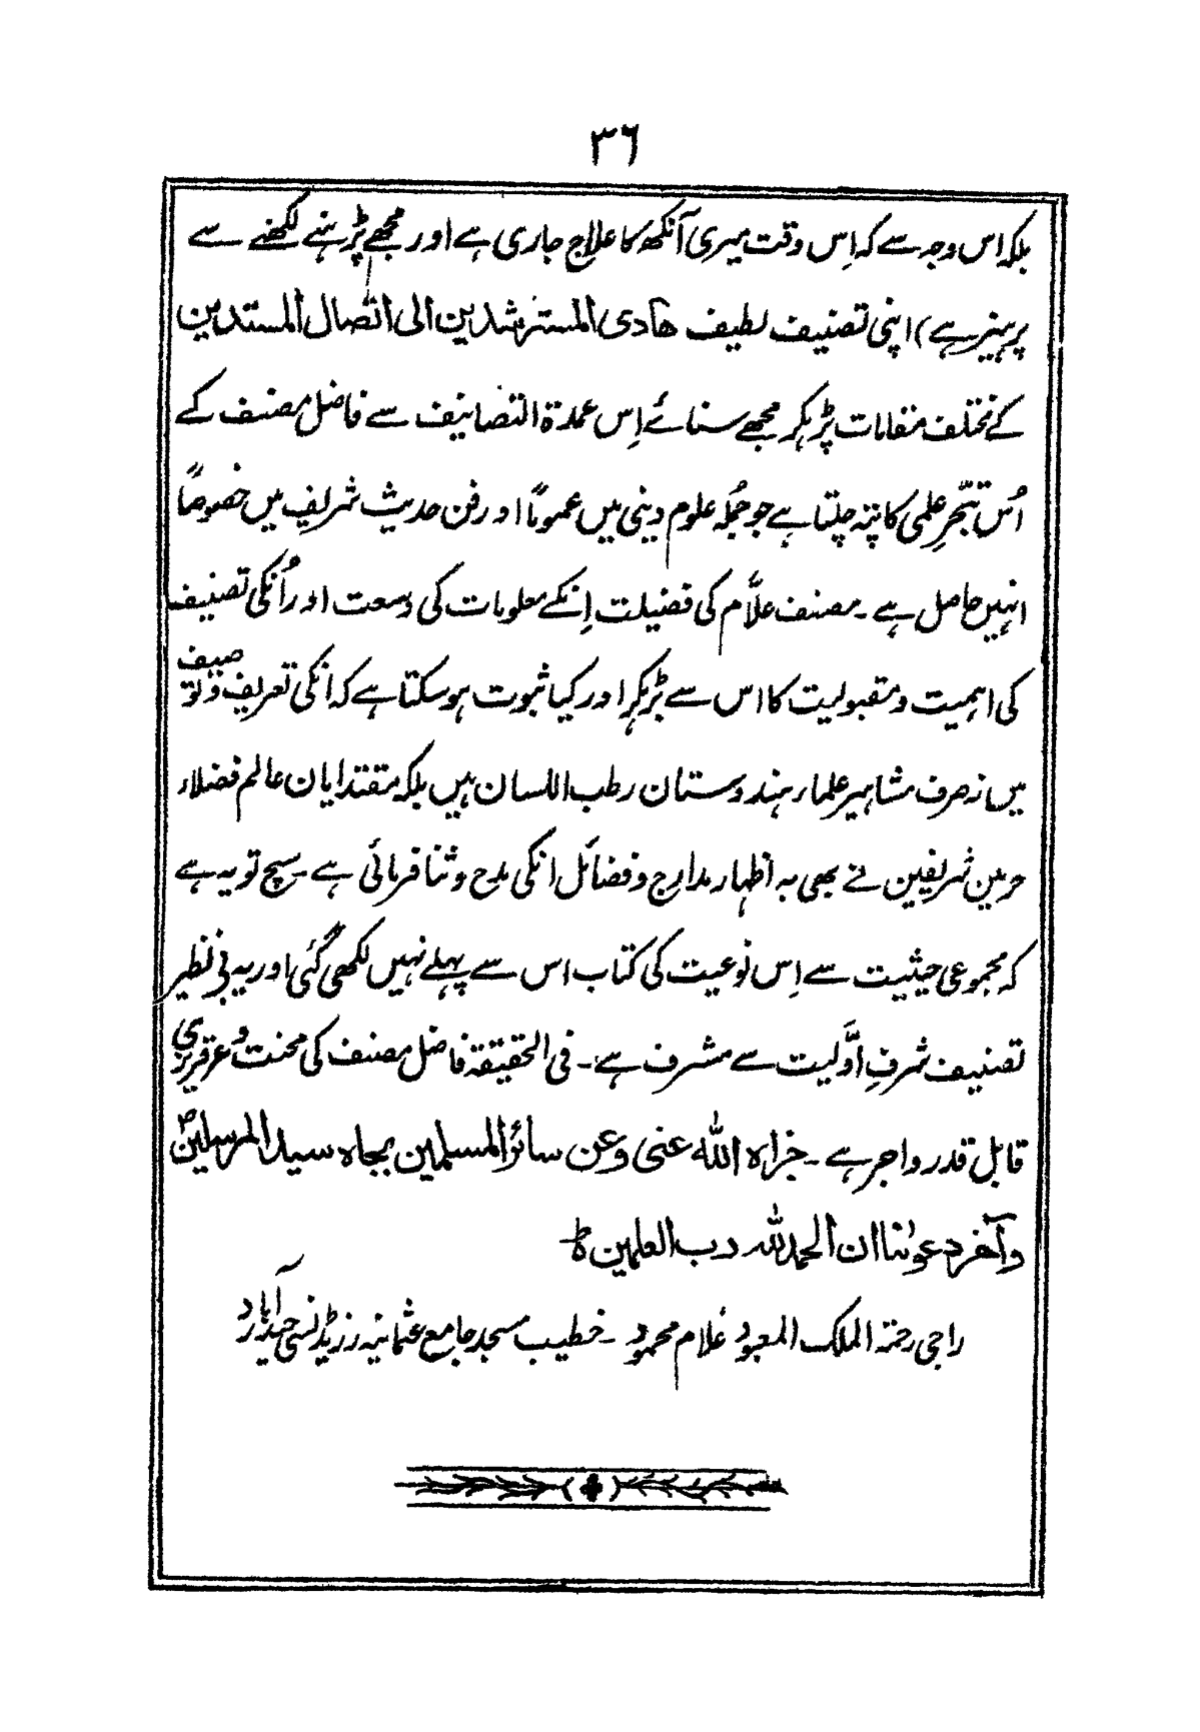 ۳۶
بلکہ اس وجہ سے کہ اِس وقت میری آنکھ کا علاج جاری ہے اور مجھے پڑہنے لکھنے سے
پرہیز ہے) اپنی تصنیف لطیف ھادی المسترشدین الی اتصال المستدین
کے مختلف مقامات پڑہکر مجھے سنائے اِس عمدۃ التصانیف سے فاضل مصنف کے
اُس تبحّرِ علمی کا پتہ چلتا ہے جو جُملہ علوم دینی میں عموماً اور فن حدیث شریف میں خصوصاً
انہیں حاصل ہے ۔ مصنف علاّم کی فضیلت اِنکے معلومات کی وسعت اور اُنکی تصنیف
کی اہمیت و مقبولیت کا اس سے بڑہکر اور کیا ثبوت ہو سکتا ہے کہ انکی تعریف و توصیف
میں نہ صرف مشاہیر علماء ہندوستان رطب اللسان ہیں بلکہ مقتدایان عالم فضلاء
حرمین شریفین نے بھی بہ اظہار مدارج و فضائل انکی مدح و ثنا فرمائی ہے ۔ سچ تو یہ ہے
کہ مجموعی حیثیت سے اِس نوعیت کی کتاب اس سے پہلے نہیں لکھی گئی اور یہ بے نظیر
تصنیف شرفِ اوَّلیت سے مشرف ہے ۔ فی الحقیقۃ فاضل مصنف کی محنت و عرقریزی
قابل قدر و اجر ہے ۔ جزاہ اللہ عنی وعن سائر المسلمین بجاہ سید المرسلینؐ
وآخر دعوٰنا ان الحمد للہ رب العلمین ط
راجی رحمۃ الملک المعبود غلام محمود ۔ خطیب مسجد جامع عثمانیہ رزیڈنسی حیدرآباد